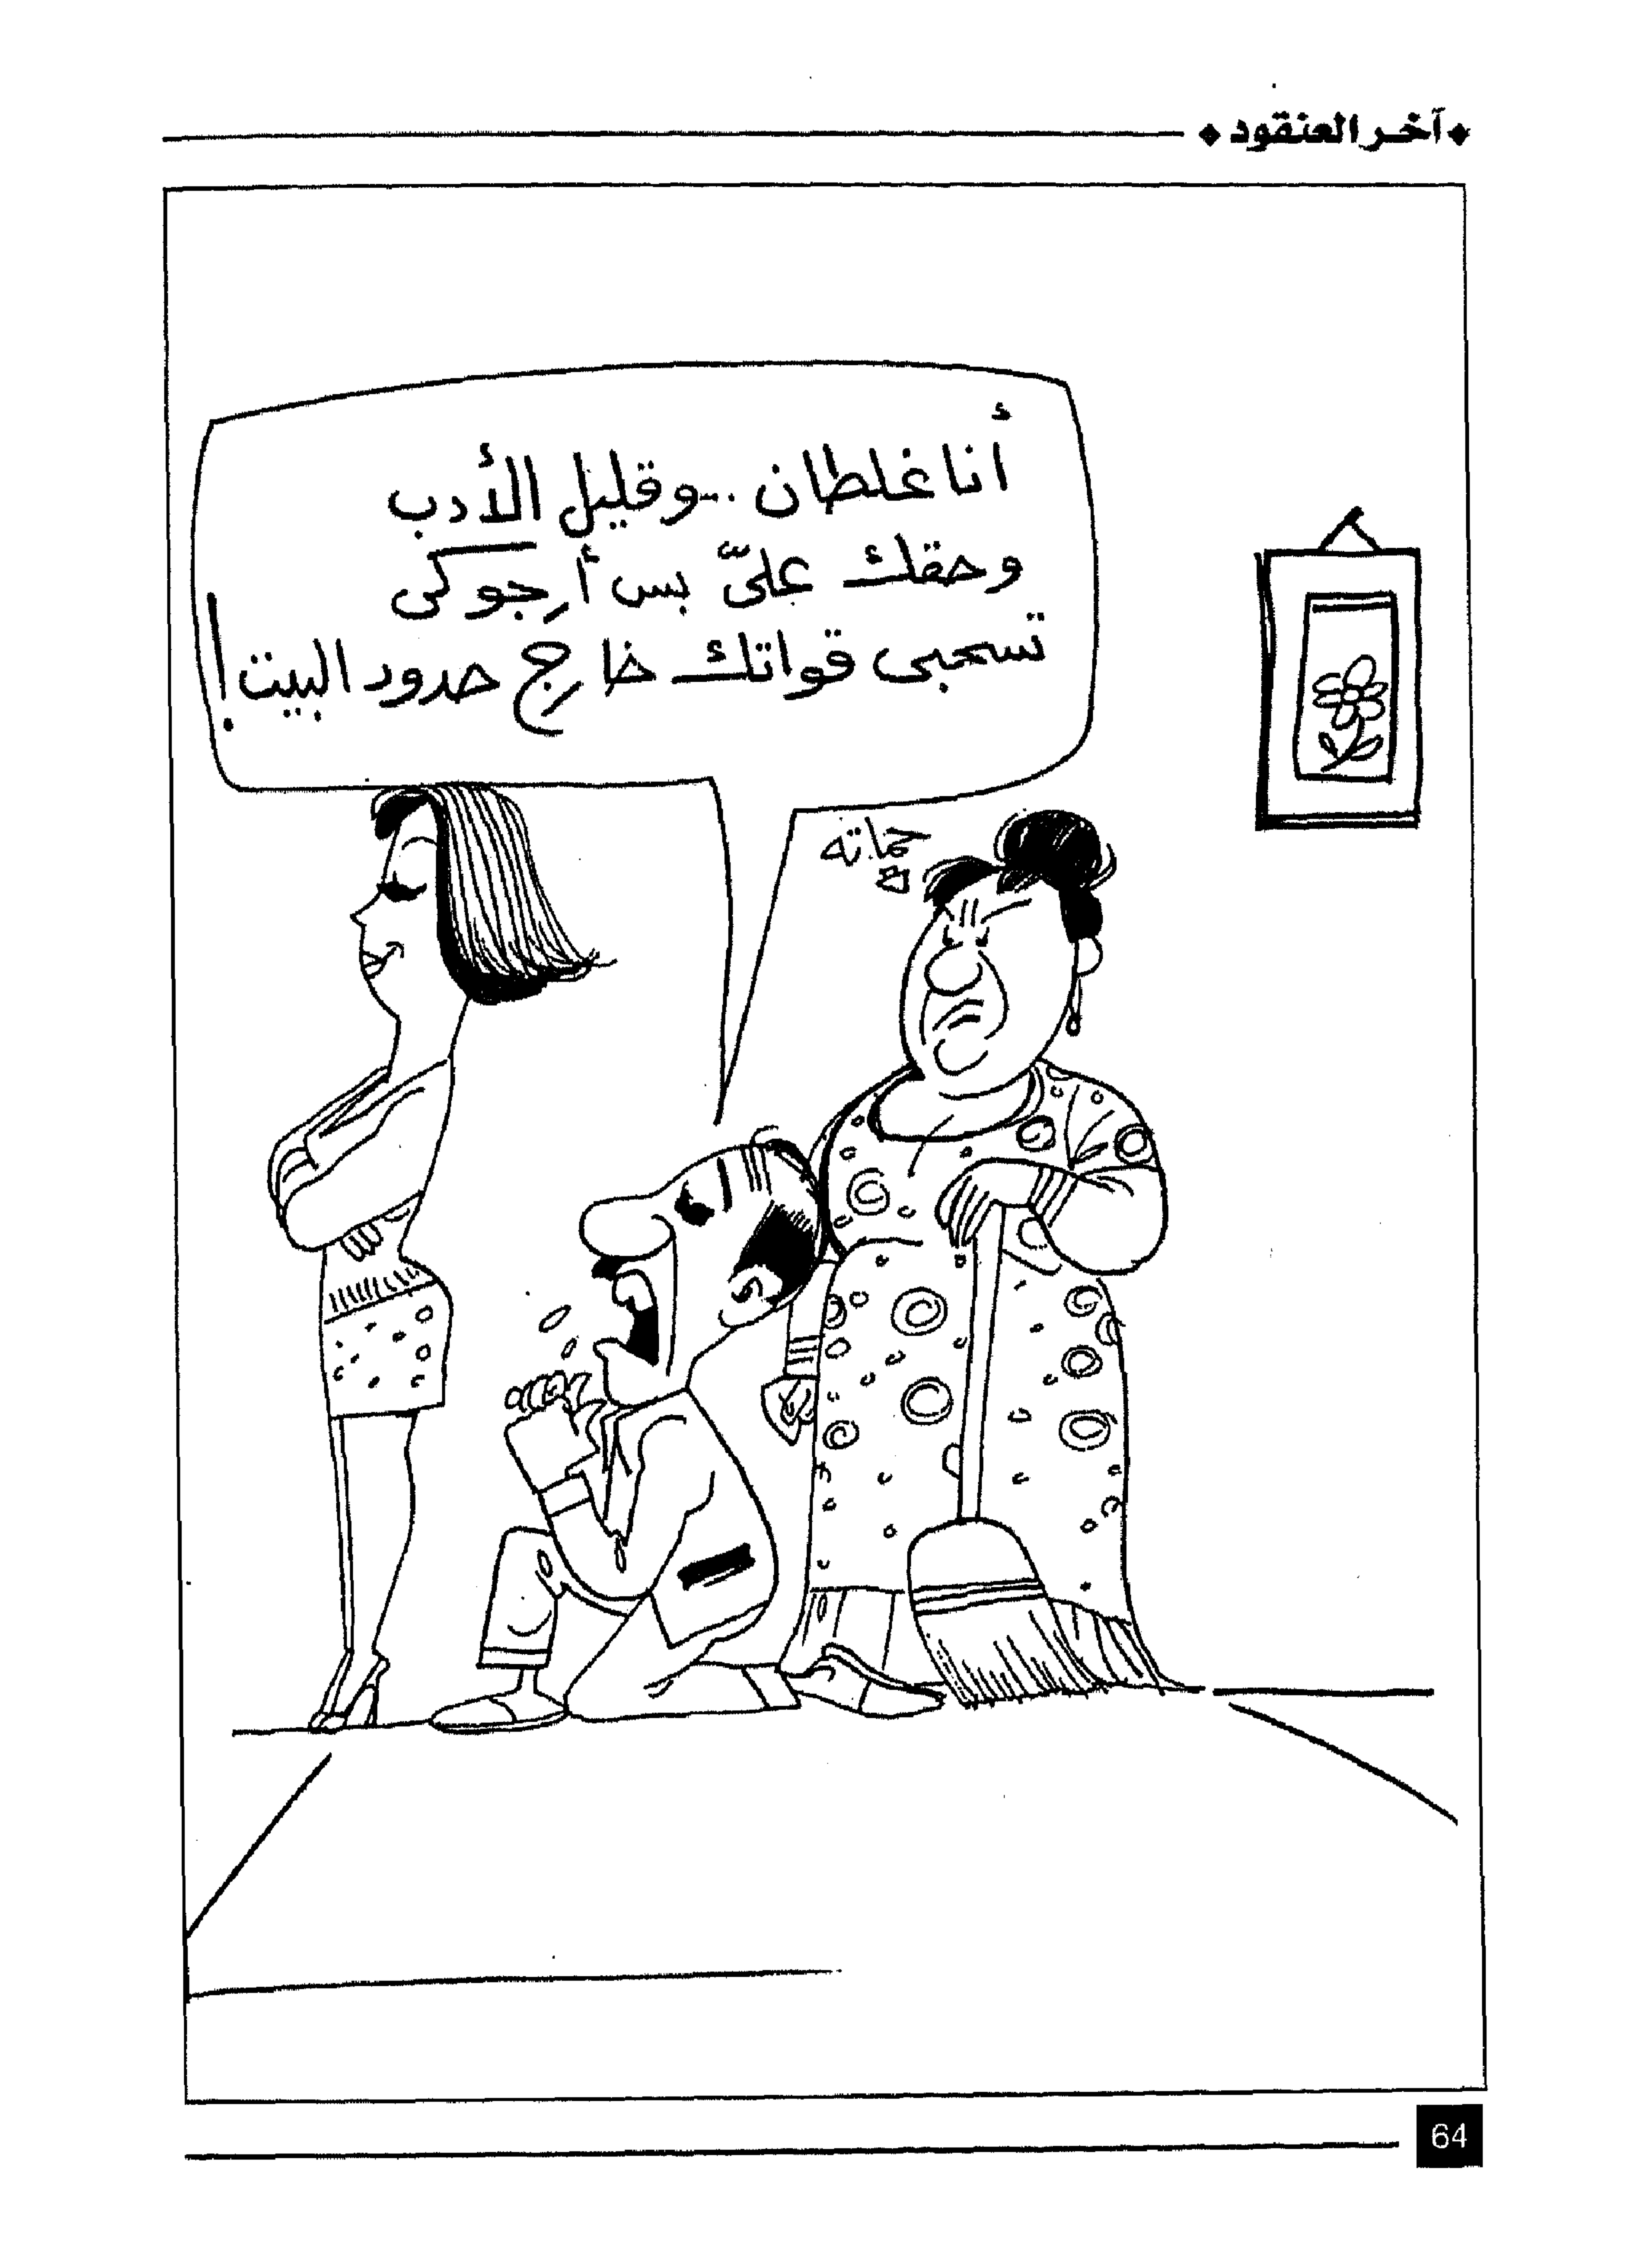 آخر العنقود
أنا غلطان .. وقليل الأدب
وحقك علىّ بس أرجوكى
تسحبى قواتك خارج حدود البيت!
حماته
64